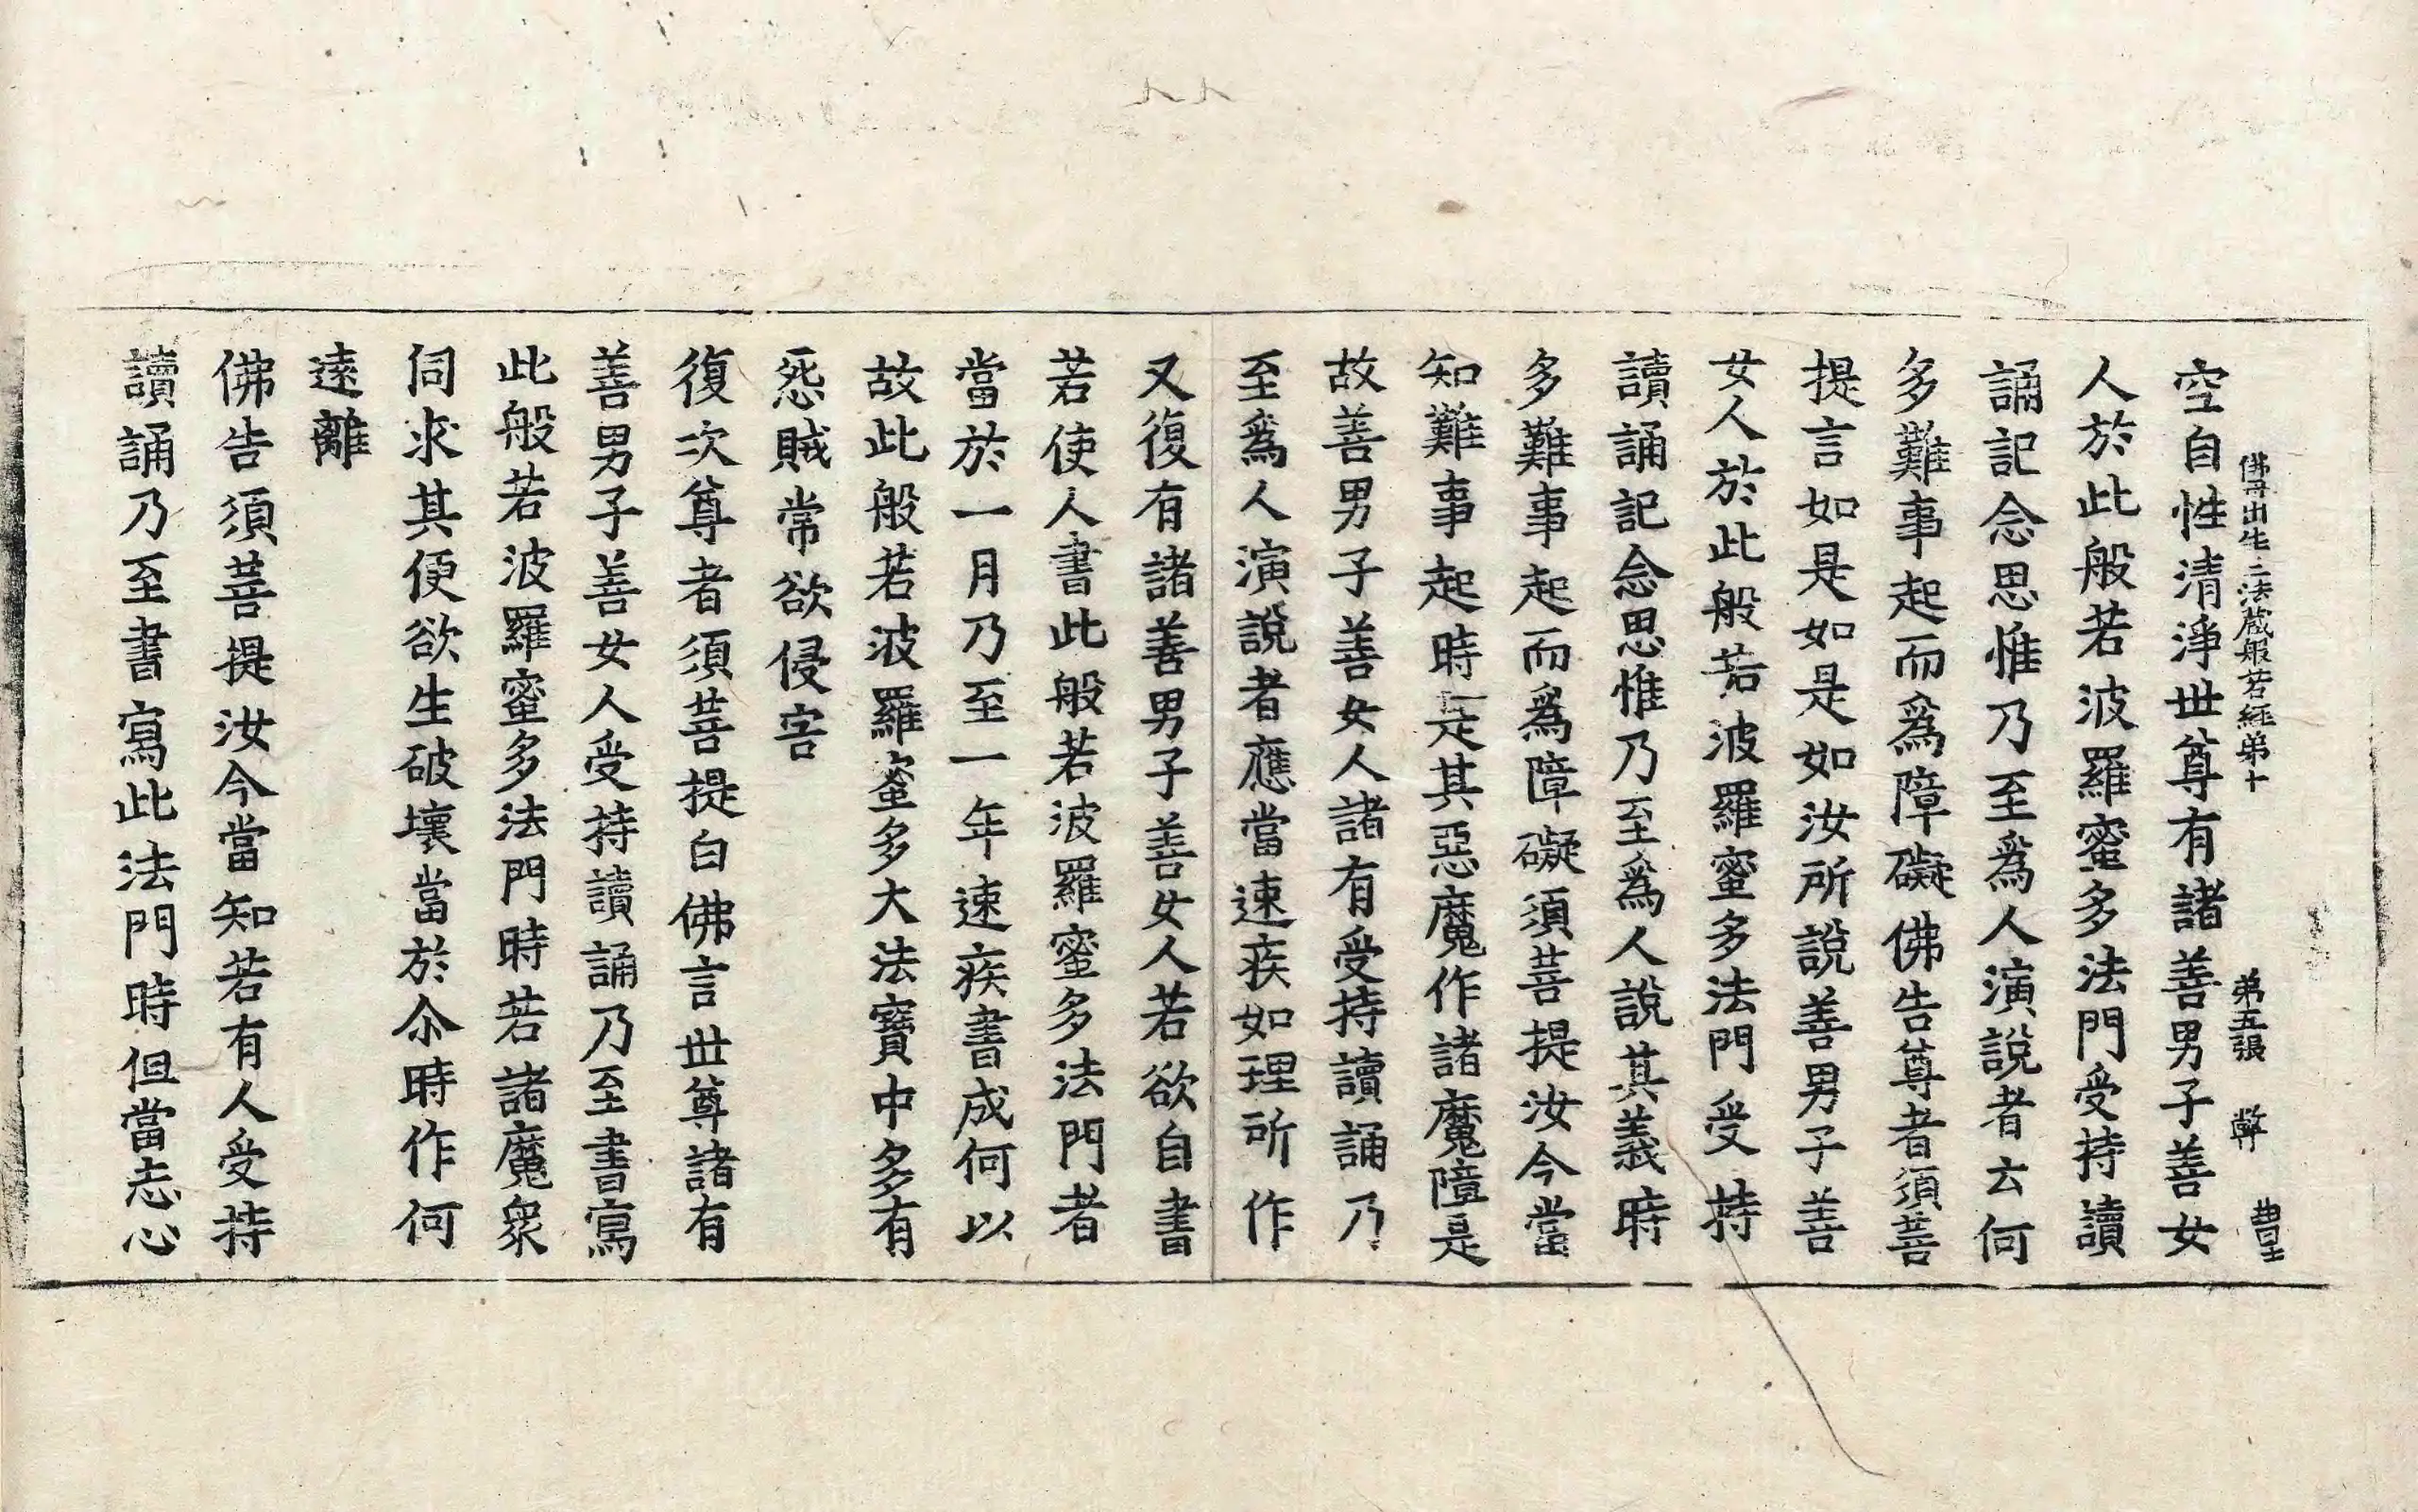 佛母出生三法藏般若經第十 第五張 弊
空自性清淨世尊有諸善男子善女
人於此般若波羅蜜多法門受持讀
誦記念思惟乃至爲人演說者云何
多難事起而爲障礙佛告尊者須菩
提言如是如是如汝所說善男子善
女人於此般若波羅蜜多法門受持
讀誦記念思惟乃至爲人說其義時
多難事起而爲障礙須菩提汝今當
知難事起時是其惡魔作諸魔障是
故善男子善女人諸有受持讀誦乃
至爲人演說者應當速疾如理所作
又復有諸善男子善女人若欲自書
若使人書此般若波羅蜜多法門者
當於一月乃至一年速疾書成何以
故此般若波羅蜜多大法寶中多有
惌賊常欲侵害
復次尊者須菩提白佛言世尊諸有
善男子善女人受持讀誦乃至書寫
此般若波羅蜜多法門時若諸魔衆
伺求其便欲生破壞當於尒時作何
遠離
佛告須菩提汝今當知若有人受持
讀誦乃至書寫此法門時但當志心